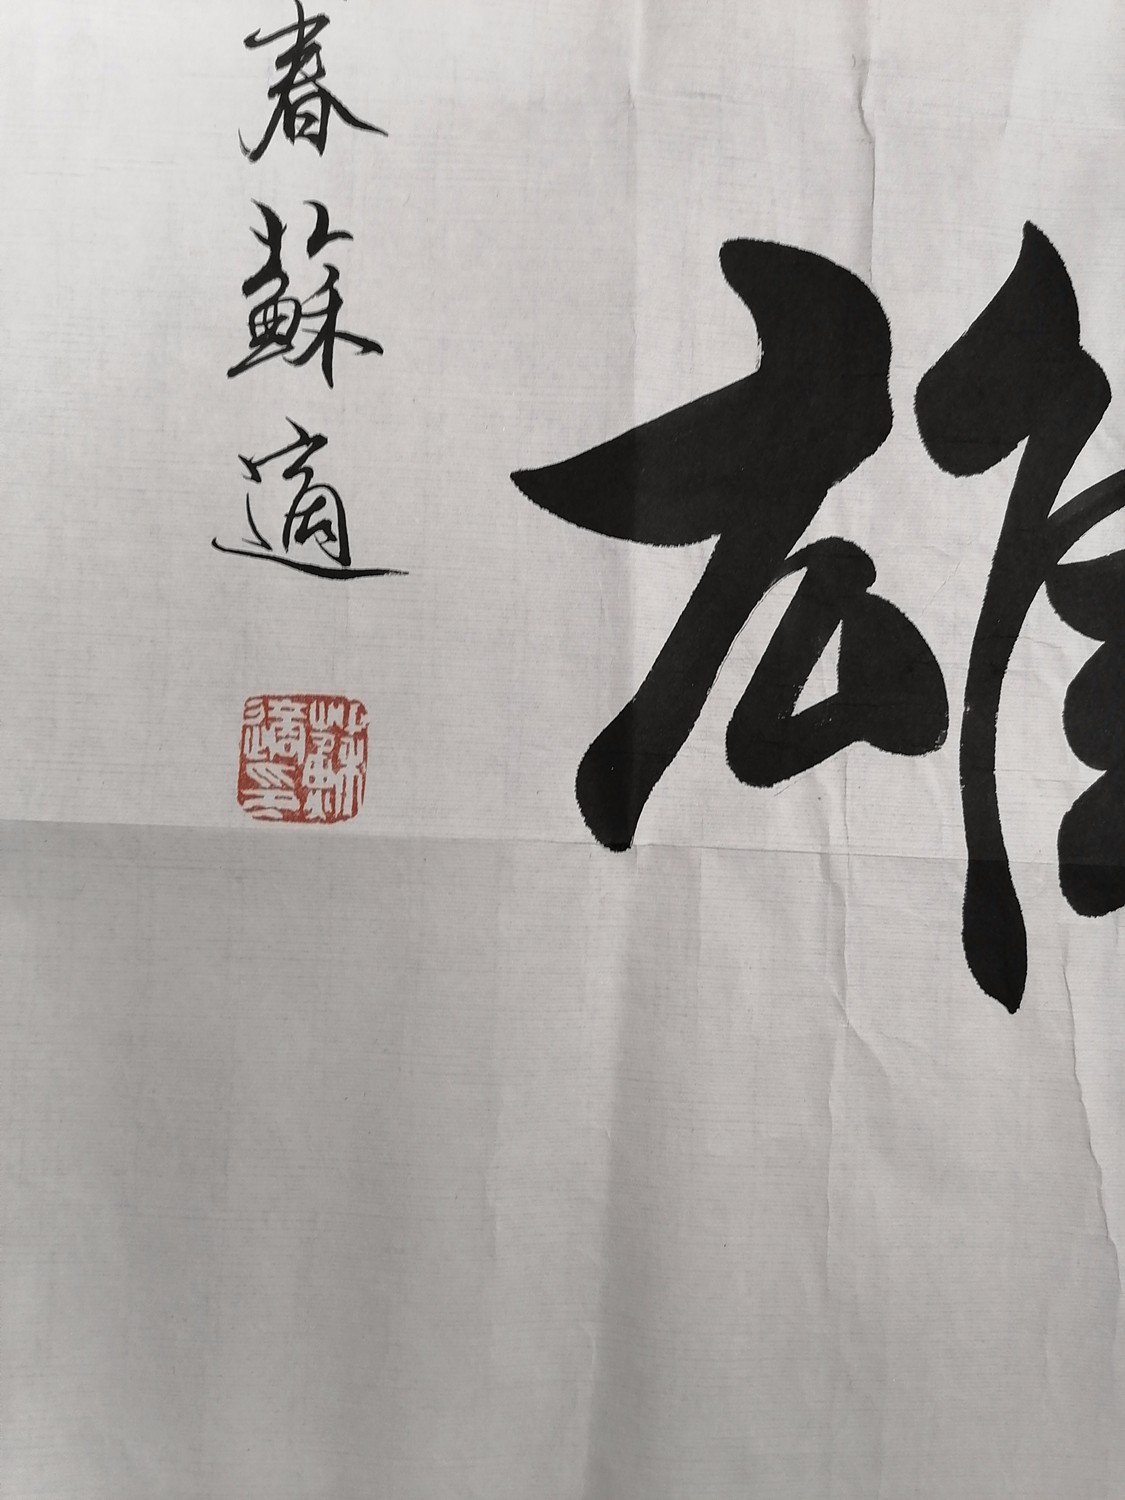 雄
春蘇適
蘇適之印